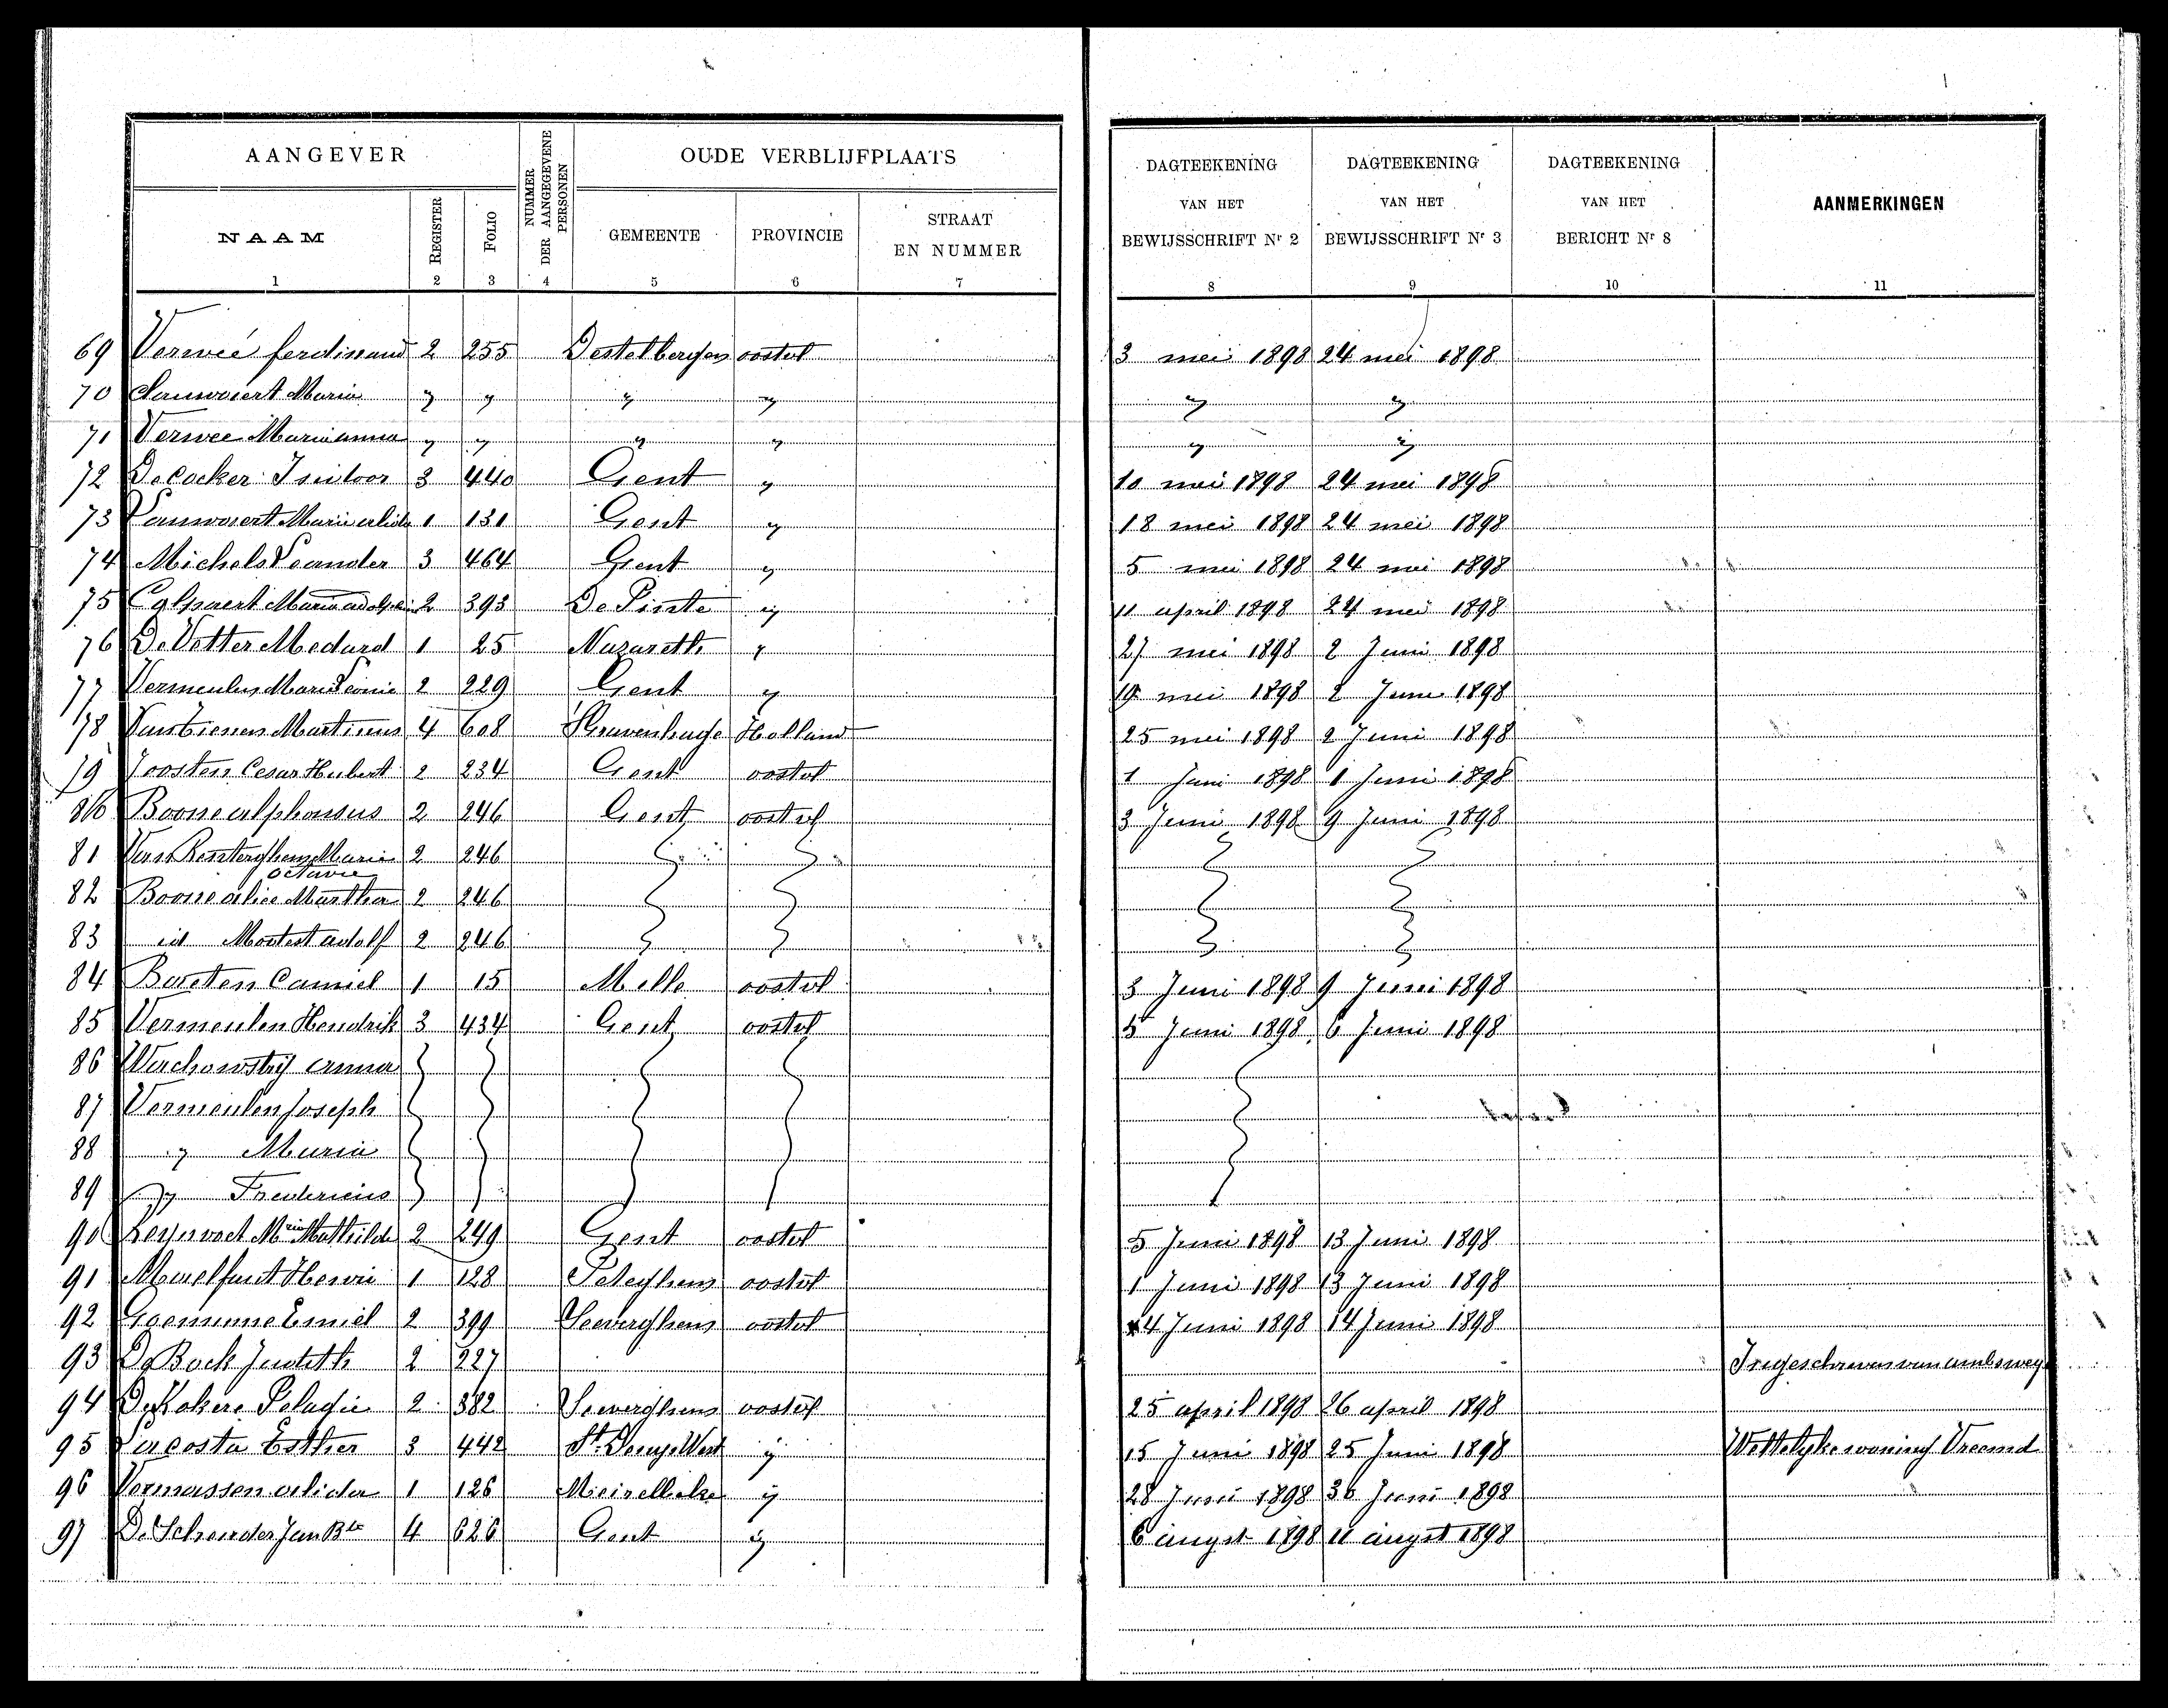 AANGEVER
NUMMER DER AANGEGEVENE PERSONEN
OUDE VERBLIJFPLAATS
DAGTEEKENING VAN HET BEWIJSSCHRIFT Nr 2
DAGTEEKENING VAN HET BEWIJSSCHRIFT Nr 3
DAGTEEKENING VAN HET BERICHT Nr 8
AANMERKINGEN
NAAM REGISTER FOLIO GEMEENTE PROVINCIE STRAAT EN NUMMER
1 2 3 4 5 6 7 8 9 10 11
69 Verweé ferdinand 2 255 Destelbergen oostvl 3 mei 1898 24 mei 1898
70 Maria " " " " " "
71 Verwee Marianna " " " " " "
72 De Cocker Isidoor 3 440 Gent " 10 mei 1898 24 mei 1898
73 1 131 Gent " 18 mei 1898 24 mei 1898
74 Michels Leander 3 464 Gent " 5 mei 1898 24 mei 1898
75 Colpaert Maria 2 393 De Pinte " 11 april 1898 24 mei 1898
76 De Vetter Medard 1 25 Nazareth " 27 mei 1898 2 Juni 1898
77 Vermeulen Marie Leonie 2 229 Gent " mei 1898 2 Juni 1898
78 Martinus 4 608 'SGravenhage Holland 25 mei 1898 2 Juni 1898
79 Joosten Cesar Hubert 2 234 Gent oostvl 1 Juni 1898 1 Juni 1898
80 Boone alphonsus 2 246 Gent oostvl 3 Juni 1898 9 Juni 1898
81 Maria 2 246
octavie
82 Boone alice Martha 2 246
83 id Modest adolf 2 246
84 Baeten Camiel 1 15 Melle oostvl 3 Juni 1898 9 Juni 1898
85 Vermeulen Hendrik 3 434 Gent oostvl 5 Juni 1898 6 Juni 1898
86 anna
87 Vermeulen Joseph
88 " Maria
89 " Fredericus
90 Mria Mathilde 2 249 Gent oostvl 5 Juni 1898 13 Juni 1898
91 Maelfait 1 128 Peteghem oostvl 1 Juni 1898 13 Juni 1898
92 Goeminne Emiel 2 399 Seeverghem oostvl 4 Juni 1898 14 Juni 1898
93 De Bock Judith 2 227 Ingeschreven van ambsweg
94 Pelagie 2 382 Seeverghem oostvl 25 april 1898 26 april 1898
95 Lacosta Esther 3 442 St Denys West " 15 Juni 1898 25 Juni 1898 Wettelyke woning Vreemd
96 Vermassen alida 1 126 Meirelbeke " 28 Juni 1898 30 Juni 1898
97 Jan Bte 4 626 Gent " 6 augst 1898 11 augst 1898